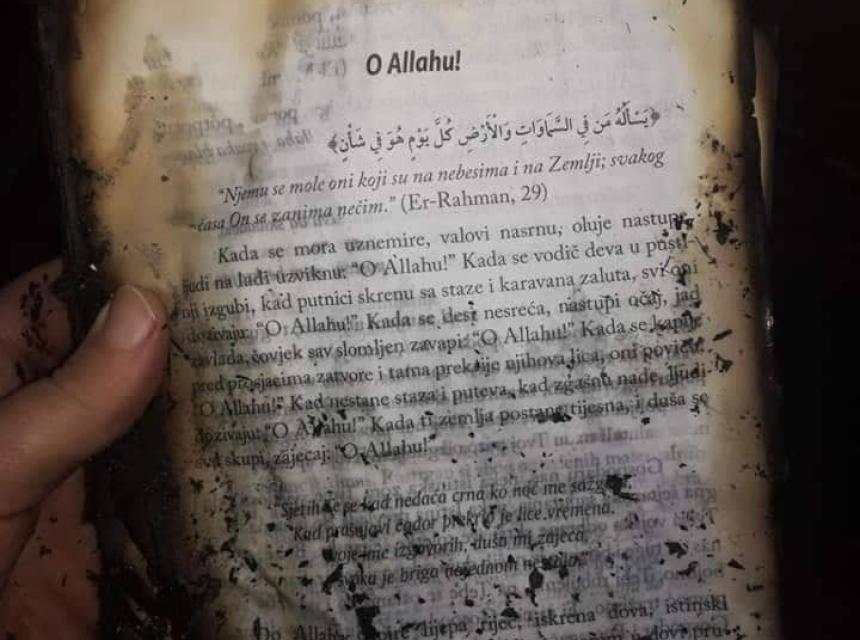 O Allahu!
﴿يَسْأَلُهُ مَن فِي السَّمَاوَاتِ وَالْأَرْضِ كُلَّ يَوْمٍ هُوَ فِي شَأْنٍ﴾
“Njemu se mole oni koji su na nebesima i na Zemlji; svakog
časa On se zanima nečim.” (Er-Rahman, 29)
Kada se mora uznemire, valovi nasrnu, oluje nastupe,
ljudi na lađi uzviknu: “O Allahu!” Kada se vodič deva u pusti-
nji izgubi, kad putnici skrenu sa staze i karavana zaluta, svi oni
dozivaju: “O Allahu!” Kada se desi nesreća, nastupi očaj, jad
zavlada, čovjek sav slomljen zavapi: “O Allahu!” Kada se kapije
pred prosjacima zatvore i tama prekrije njihova lica, oni poviču:
“O Allahu!” Kad nestane staza i puteva, kad zgasnu nade, ljudi
dozivaju: “O Allahu!” Kada ti zemlja postane tijesna, i duša se
sva skupi, zajecaj: “O Allahu!”
Sjetih se kad nedaća crna ko noć me
Kad prašnjavi čador prekrio je lice vremena.
ime izgovorih, duša mi zajeca,
je briga odjednom
Do Allaha lijepa riječ, iskrena dova, istinski